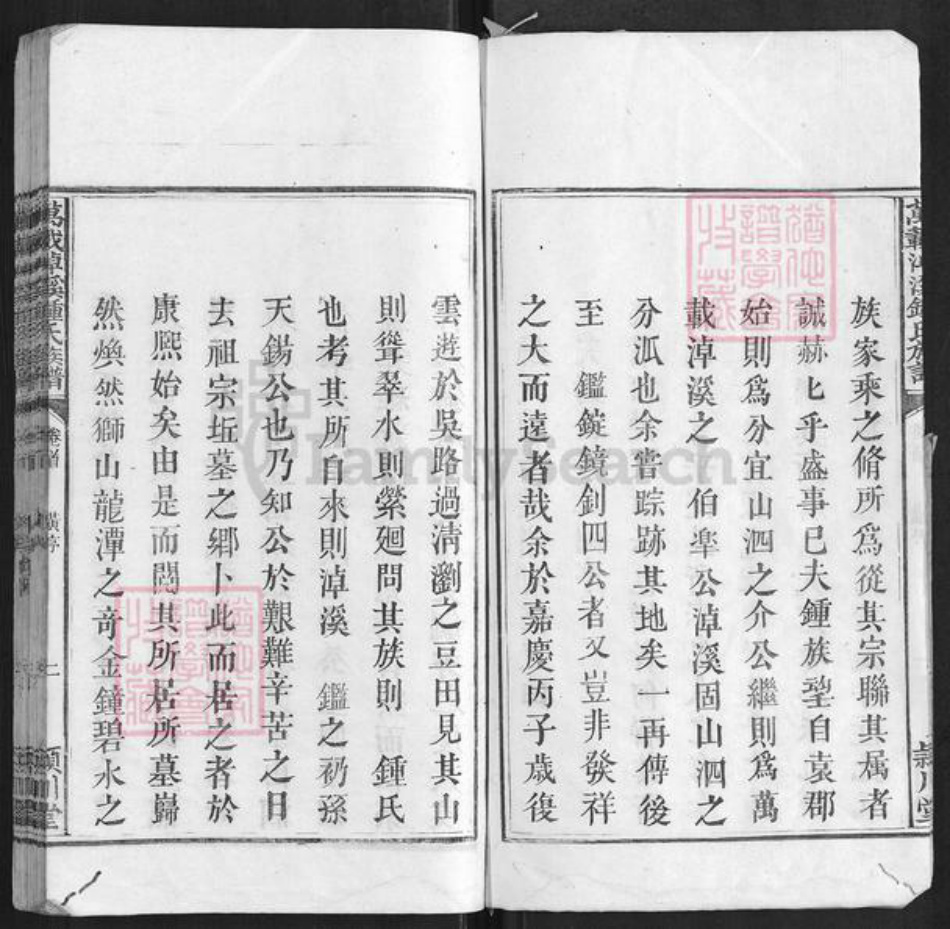 族家乘之脩所爲從其宗聯其属者
誠赫匕乎盛事已夫鍾族望自袁郡
始則爲分宜山泗之介公繼則爲萬
載淖溪之伯壆公淖溪固山泗之
分㲾也余嘗踪跡其地矣一再傳後
至 鑑鏇鏡釗四公者又豈非發祥
之大而遠者哉余於嘉慶丙子歲復
雲遊於吳路過清瀏之豆田見其山
則聳翠水則縈廻問其族則鍾氏
也考其所自來則淖溪 鑑之礽孫
天錫公也乃知公於艱難辛苦之日
去祖宗坵墓之鄉卜此而居之者於
康熈始矣由是而閲其所居所墓巋
然煥然獅山龍潭之奇金鐘碧水之
萬載淖溪鍾氏族譜
卷之首
二
潁川堂
FamilySearch